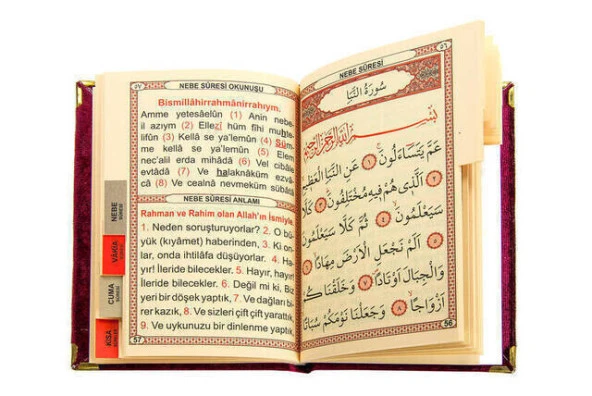 ٥٧
NEBE SÛRESİ OKUNUŞU
Bismillâhirrahmânirrahıym.
Amme yetesâelûn (1) Anin nebe-
il azıym (2) Ellezî hüm fîhi muhte-
lifûn (3) Kellâ se ya'lemûn (4) Süm-
me kellâ se ya'lemûn (5) Elem
nec'alil erda mihâdâ (6) Vel cibâle
evtâdâ (7) Ve halaknâküm ezvâ-
câ (8) Ve cealnâ nevmeküm sübâtâ
NEBE SÛRESİ ANLAMI
Rahman ve Rahim olan Allah'ın İsmiyle
1. Neden soruşturuyorlar? 2. O bü-
yük (kıyâmet) haberinden, 3. Ki on-
lar, onda ihtilâfa düşüyorlar. 4. Ha-
yır! İleride bilecekler. 5. Hayır, hayır!
İleride bilecekler. 6. Değil mi ki, Biz
yeri bir döşek yaptık, 7. Ve dağları bi-
rer kazık, 8. Ve sizleri çift çift yarattık,
9. Ve uykunuzu bir dinlenme yaptık,
57
NEBE
SÛRESİ
VÂKIA
SÛRESİ
CUMA
SÛRESİ
KISA
٥٦
NEBE SÛRESİ
سُورَةُ النَّبَأِ
بِسْمِ اللّٰهِ الرَّحْمٰنِ الرَّحِيمِ
عَمَّ يَتَسَاءَلُونَ ﴿١﴾ عَنِ النَّبَإِ الْعَظِيمِ
﴿٢﴾ اَلَّذِى هُمْ فِيهِ مُخْتَلِفُونَ ﴿٣﴾ كَلَّا
سَيَعْلَمُونَ ﴿٤﴾ ثُمَّ كَلَّا سَيَعْلَمُونَ
﴿٥﴾ اَلَمْ نَجْعَلِ الْاَرْضَ مِهَادًا ﴿٦﴾
وَالْجِبَالَ اَوْتَادًا ﴿٧﴾ وَخَلَقْنَاكُمْ
اَزْوَاجًا ﴿٨﴾ وَجَعَلْنَا نَوْمَكُمْ سُبَاتًا
56